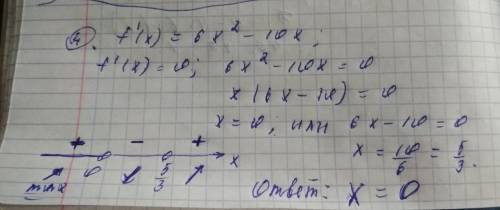 4. f'(x) = 6x² - 10x;
f'(x) = 0; 6x² - 10x = 0
x(6x - 10) = 0
x = 0, или 6x - 10 = 0
x = 10/6 = 5/3.
+ - +
0 5/3 x
max
Ответ: x = 0